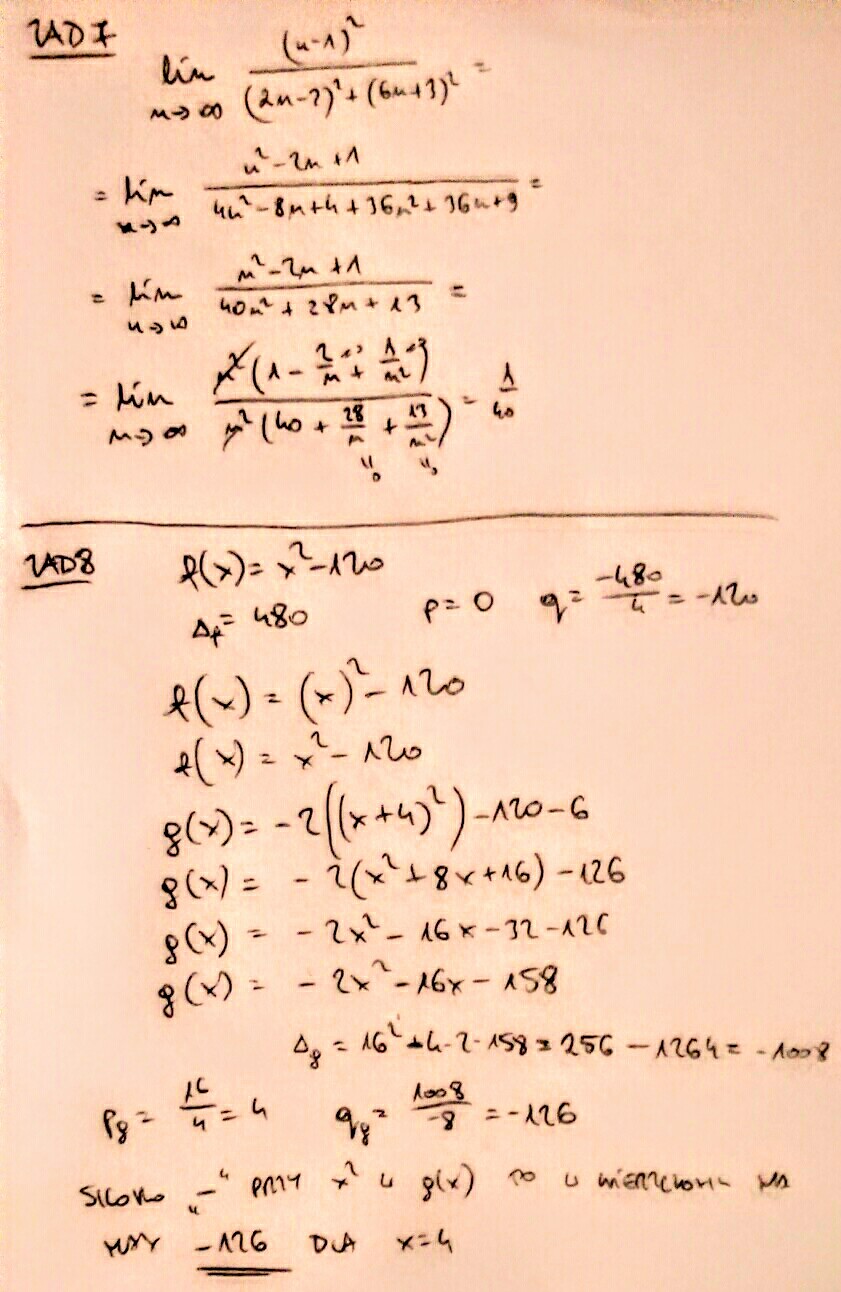 ZAD 7
lim n→∞ (n-1)² / ((2n-2)² + (6n+3)²) =
= lim n→∞ (n² - 2n + 1) / (4n² - 8n + 4 + 36n² + 36n + 9) =
= lim n→∞ (n² - 2n + 1) / (40n² + 28n + 13) =
= lim n→∞ n²(1 - 2/n + 1/n²) / n²(40 + 28/n + 13/n²) = 1/40
ZAD 8 f(x) = x² - 120
Δf = 480 p = 0 q = -480/4 = -120
f(x) = (x)² - 120
f(x) = x² - 120
g(x) = -2((x+4)²) - 120 - 6
g(x) = - 2(x² + 8x + 16) - 126
g(x) = - 2x² - 16x - 32 - 126
g(x) = - 2x² - 16x - 158
Δg = 16² + 4·2·158 = 256 - 1264 = -1008
Pg = 16/4 = 4 qg = 1008/-8 = -126
SKORO „-“ PRZY x² W g(x) TO W WIERZCHOŁK MA
MAX -126 DLA x=4